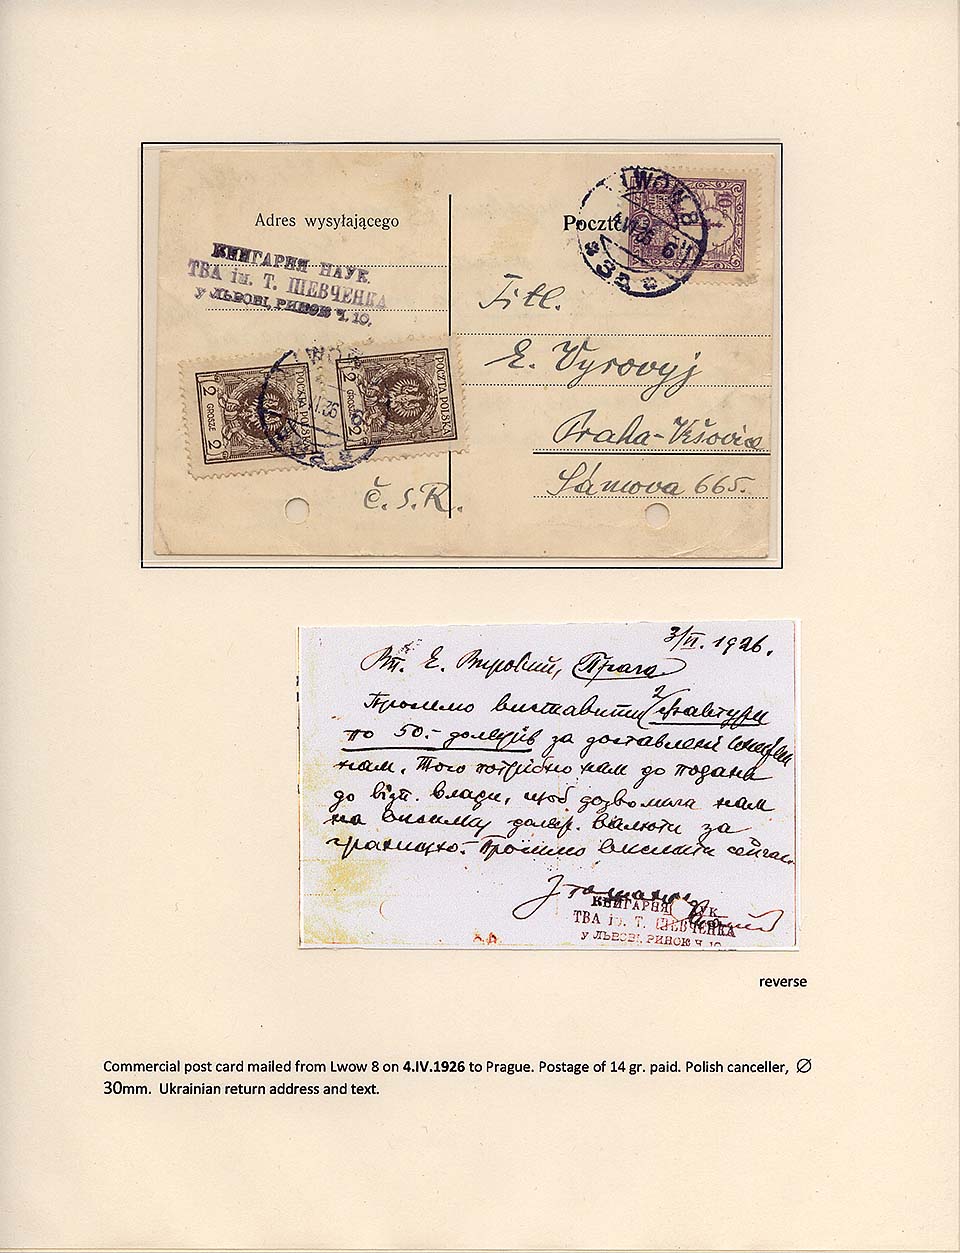 Adres wysyłającego
КНИГАРНЯ НАУК.
ТВА ім. Т. ШЕВЧЕНКА
у ЛЬВОВІ, РИНОК Ч. 10.
Poczt
LWÓW 8
10
Titl.
E. Vyrovyj
Praha-Vršovice
Sámova 665.
Č.S.R.
POCZTA POLSKA
2 GROSZE 2
POCZTA POLSKA
2 GROSZE 2
3/VI. 1926.
Вп. Е. Вировий, Прага
Просимо виставити 2 фактури
по 50.- долярів за доставлені
нам. Того потрібно нам до подання
до відп. влади, щоб дозволила нам
на висилку доляр. валюти за
границю. - Просимо вислати сейчас
КНИГАРНЯ НАУК.
ТВА ім. Т. ШЕВЧЕНКА
у ЛЬВОВІ, РИНОК Ч. 10.
reverse
Commercial post card mailed from Lwow 8 on 4.IV.1926 to Prague. Postage of 14 gr. paid. Polish canceller, ∅
30mm. Ukrainian return address and text.